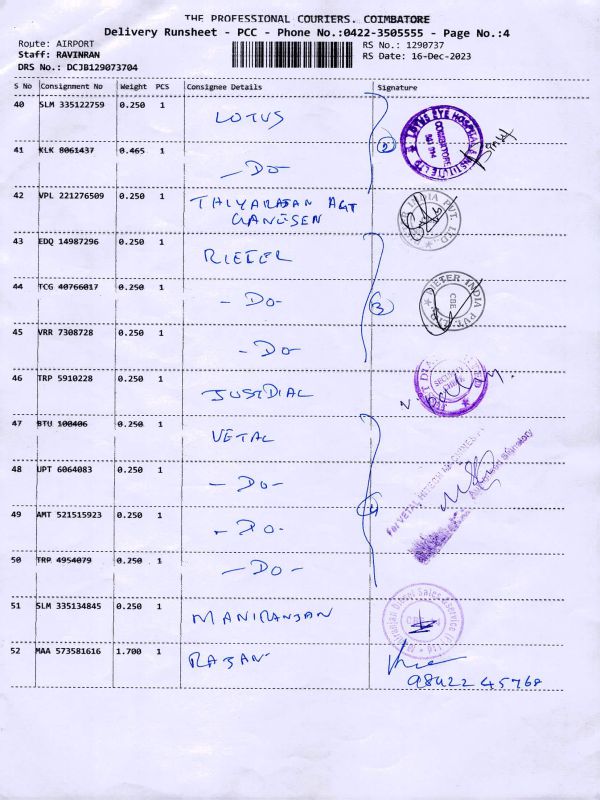 THE PROFESSIONAL COURIERS. COIMBATORE
Delivery Runsheet - PCC - Phone No.:0422-3505555 - Page No.:4
Route: AIRPORT
RS No.: 1290737
Staff: RAVINRAN
RS Date: 16-Dec-2023
DRS No.: DCJB129073704
S No Consignment No Weight PCS Consignee Details Signature
40 SLM 335122759 0.250 1 LOTUS
LOTUS EYE HOSPITAL & INSTITUTE LTD
COIMBATORE
641 014
41 KLK 8061437 0.465 1 - DO
2
42 VPL 221276509 0.250 1 THIYARAJAN AGT
INDIA PVT. LTD.
43 EDQ 14987296 0.250 1 RIETER
44 TCG 40766017 0.250 1 - DO -
3
RIETER INDIA PVT. LTD.
CBE
45 VRR 7308728 0.250 1 - DO
46 TRP 5910228 0.250 1 JUSTDIAL
SECURITY
47 BTU 100406 0.250 1 VETAL
48 UPT 6064083 0.250 1 - DO -
4
For VETAL HITECH
Authorised Signatory
49 AMT 521515923 0.250 1 - DO -
50 TRP 4954079 0.250 1 - DO -
51 SLM 335134845 0.250 1 MANIRANJAN
Maniranjan Diesel Sales & Service (P) Ltd
52 MAA 573581616 1.700 1 RAJAN
98422 45768